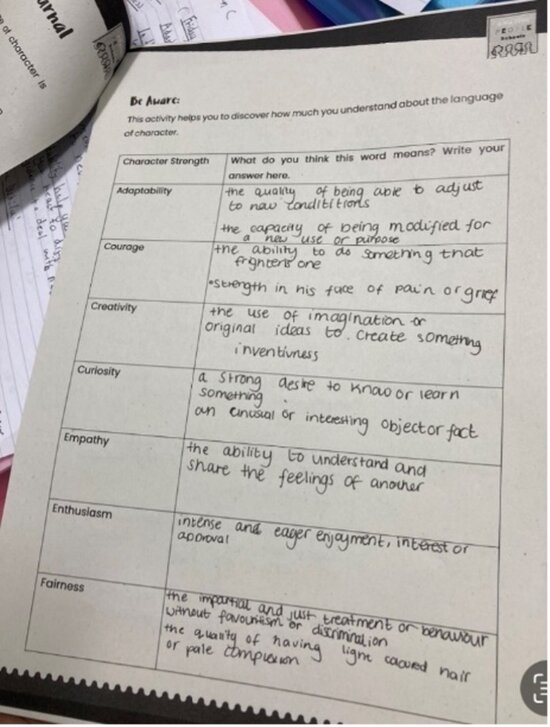 urnal
e of character is
PEOPLE
Schools
Be Aware:
This activity helps you to discover how much you understand about the language
of character.
Character Strength
What do you think this word means? Write your
answer here.
Adaptability
the quality of being able to adjust
to new condititions
the capacity of being modified for
a new use or purpose
Courage
the ability to do something that
frightens one
•strength in his face of pain or grief
Creativity
the use of imagination or
original ideas to. create something
inventivness
Curiosity
a strong desire to know or learn
something
an unusual or interesting object or fact
Empathy
the ability to understand and
share the feelings of another
Enthusiasm
intense and eager enjoyment, interest or
approval
Fairness
the impartial and just treatment or behaviour
without favouritism or discrimination
the quality of having light coloured hair
or pale complexion